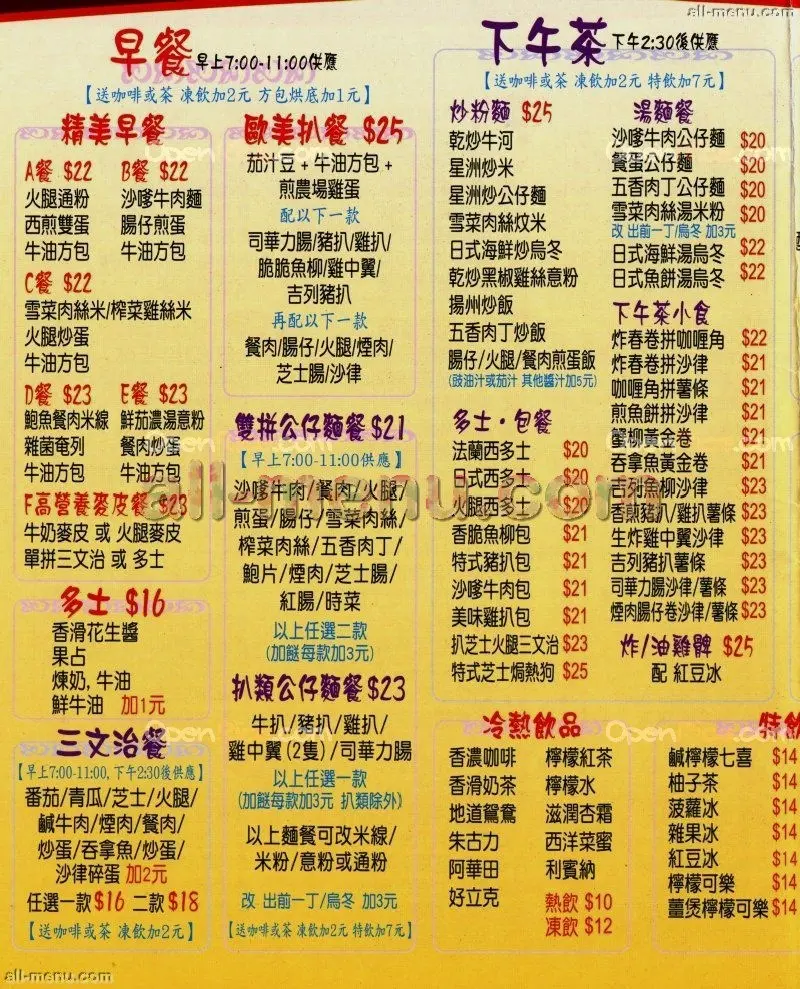 all-menu.com
早餐 早上7:00-11:00供應
【送咖啡或茶 凍飲加2元 方包烘底加1元】
精美早餐
A餐 $22
火腿通粉
西煎雙蛋
牛油方包
B餐 $22
沙嗲牛肉麵
腸仔煎蛋
牛油方包
C餐 $22
雪菜肉絲米/榨菜雞絲米
火腿炒蛋
牛油方包
D餐 $23
鮑魚餐肉米線
雜菌奄列
牛油方包
E餐 $23
鮮茄濃湯意粉
餐肉炒蛋
牛油方包
F高營養麥皮餐 $23
牛奶麥皮 或 火腿麥皮
單拼三文治 或 多士
多士 $16
香滑花生醬
果占
煉奶, 牛油
鮮牛油 加1元
三文治餐
【早上7:00-11:00, 下午2:30後供應】
番茄/青瓜/芝士/火腿/
鹹牛肉/煙肉/餐肉/
炒蛋/吞拿魚/炒蛋/
沙律碎蛋 加2元
任選一款$16 二款$18
【送咖啡或茶 凍飲加2元】
歐美扒餐 $25
茄汁豆 + 牛油方包 +
煎農場雞蛋
配以下一款
司華力腸/豬扒/雞扒/
脆脆魚柳/雞中翼/
吉列豬扒
再配以下一款
餐肉/腸仔/火腿/煙肉/
芝士腸/沙律
雙拼公仔麵餐 $21
【早上7:00-11:00供應】
沙嗲牛肉/餐肉/火腿/
煎蛋/腸仔/雪菜肉絲/
榨菜肉絲/五香肉丁/
鮑片/煙肉/芝士腸/
紅腸/時菜
以上任選二款
(加餸每款加3元)
扒類公仔麵餐 $23
牛扒/豬扒/雞扒/
雞中翼(2隻)/司華力腸
以上任選一款
(加餸每款加3元 扒類除外)
以上麵餐可改米線/
米粉/意粉或通粉
改 出前一丁/烏冬 加3元
【送咖啡或茶 凍飲加2元 特飲加7元】
下午茶 下午2:30後供應
【送咖啡或茶 凍飲加2元 特飲加7元】
炒粉麵 $25
乾炒牛河
星洲炒米
星洲炒公仔麵
雪菜肉絲炆米
日式海鮮炒烏冬
乾炒黑椒雞絲意粉
揚州炒飯
五香肉丁炒飯
腸仔/火腿/餐肉煎蛋飯
(豉油汁或茄汁 其他醬汁加5元)
多士·包餐
法蘭西多士 $20
日式西多士 $20
火腿西多士 $20
香脆魚柳包 $21
特式豬扒包 $21
沙嗲牛肉包 $21
美味雞扒包 $21
扒芝士火腿三文治 $23
特式芝士焗熱狗 $25
湯麵餐
沙嗲牛肉公仔麵 $20
餐蛋公仔麵 $20
五香肉丁公仔麵 $20
雪菜肉絲湯米粉 $20
改 出前一丁/烏冬 加3元
日式海鮮湯烏冬 $22
日式魚餅湯烏冬 $22
下午茶小食
炸春卷拼咖喱角 $22
炸春卷拼沙律 $21
咖喱角拼薯條 $21
煎魚餅拼沙律 $21
蟹柳黃金卷 $21
吞拿魚黃金卷 $21
吉列魚柳沙律 $23
香煎豬扒/雞扒薯條 $23
生炸雞中翼沙律 $23
吉列豬扒薯條 $23
司華力腸沙律/薯條 $23
煙肉腸仔卷沙律/薯條 $23
炸/油雞髀 $25
配 紅豆冰
冷熱飲品
香濃咖啡
香滑奶茶
地道鴛鴦
朱古力
阿華田
好立克
檸檬紅茶
檸檬水
滋潤杏霜
西洋菜蜜
利賓納
熱飲 $10
凍飲 $12
特飲
鹹檸檬七喜 $14
柚子茶 $14
菠蘿冰 $14
雜果冰 $14
紅豆冰 $14
檸檬可樂 $14
薑煲檸檬可樂 $14
all-menu.com
all-menu.com